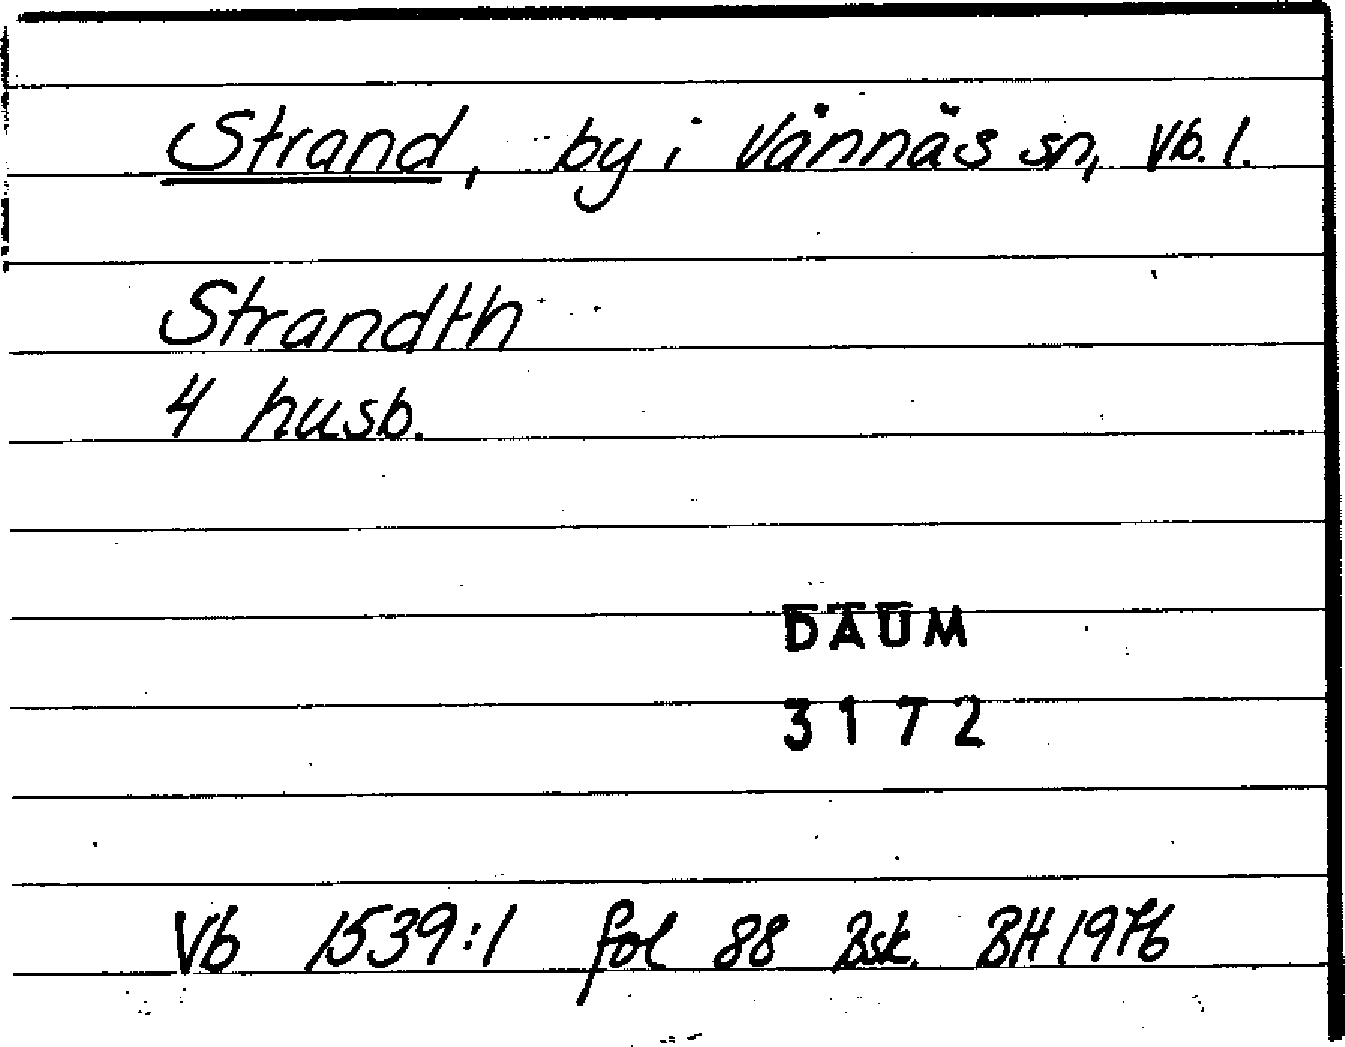 Strand, by i Vännäs sn, Vb. l.
Strandth
4 husb.
DAUM
3172
Vb 1539:1 fol 88 Bsk. BH 1976